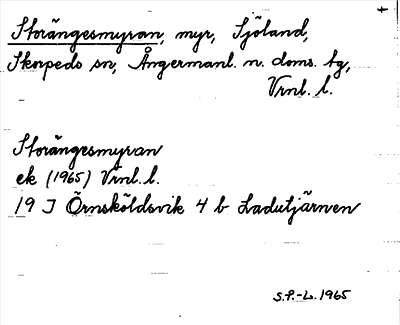 Storängesmyran, myr, Sjöland,
Skorpeds sn, Ångermanl. n. doms. tg,
Vrnl. l.
Storängesmyran
ek (1965) Vrnl. l.
19 J Örnsköldsvik 4 b Ladutjärnen
S.P.-L. 1965